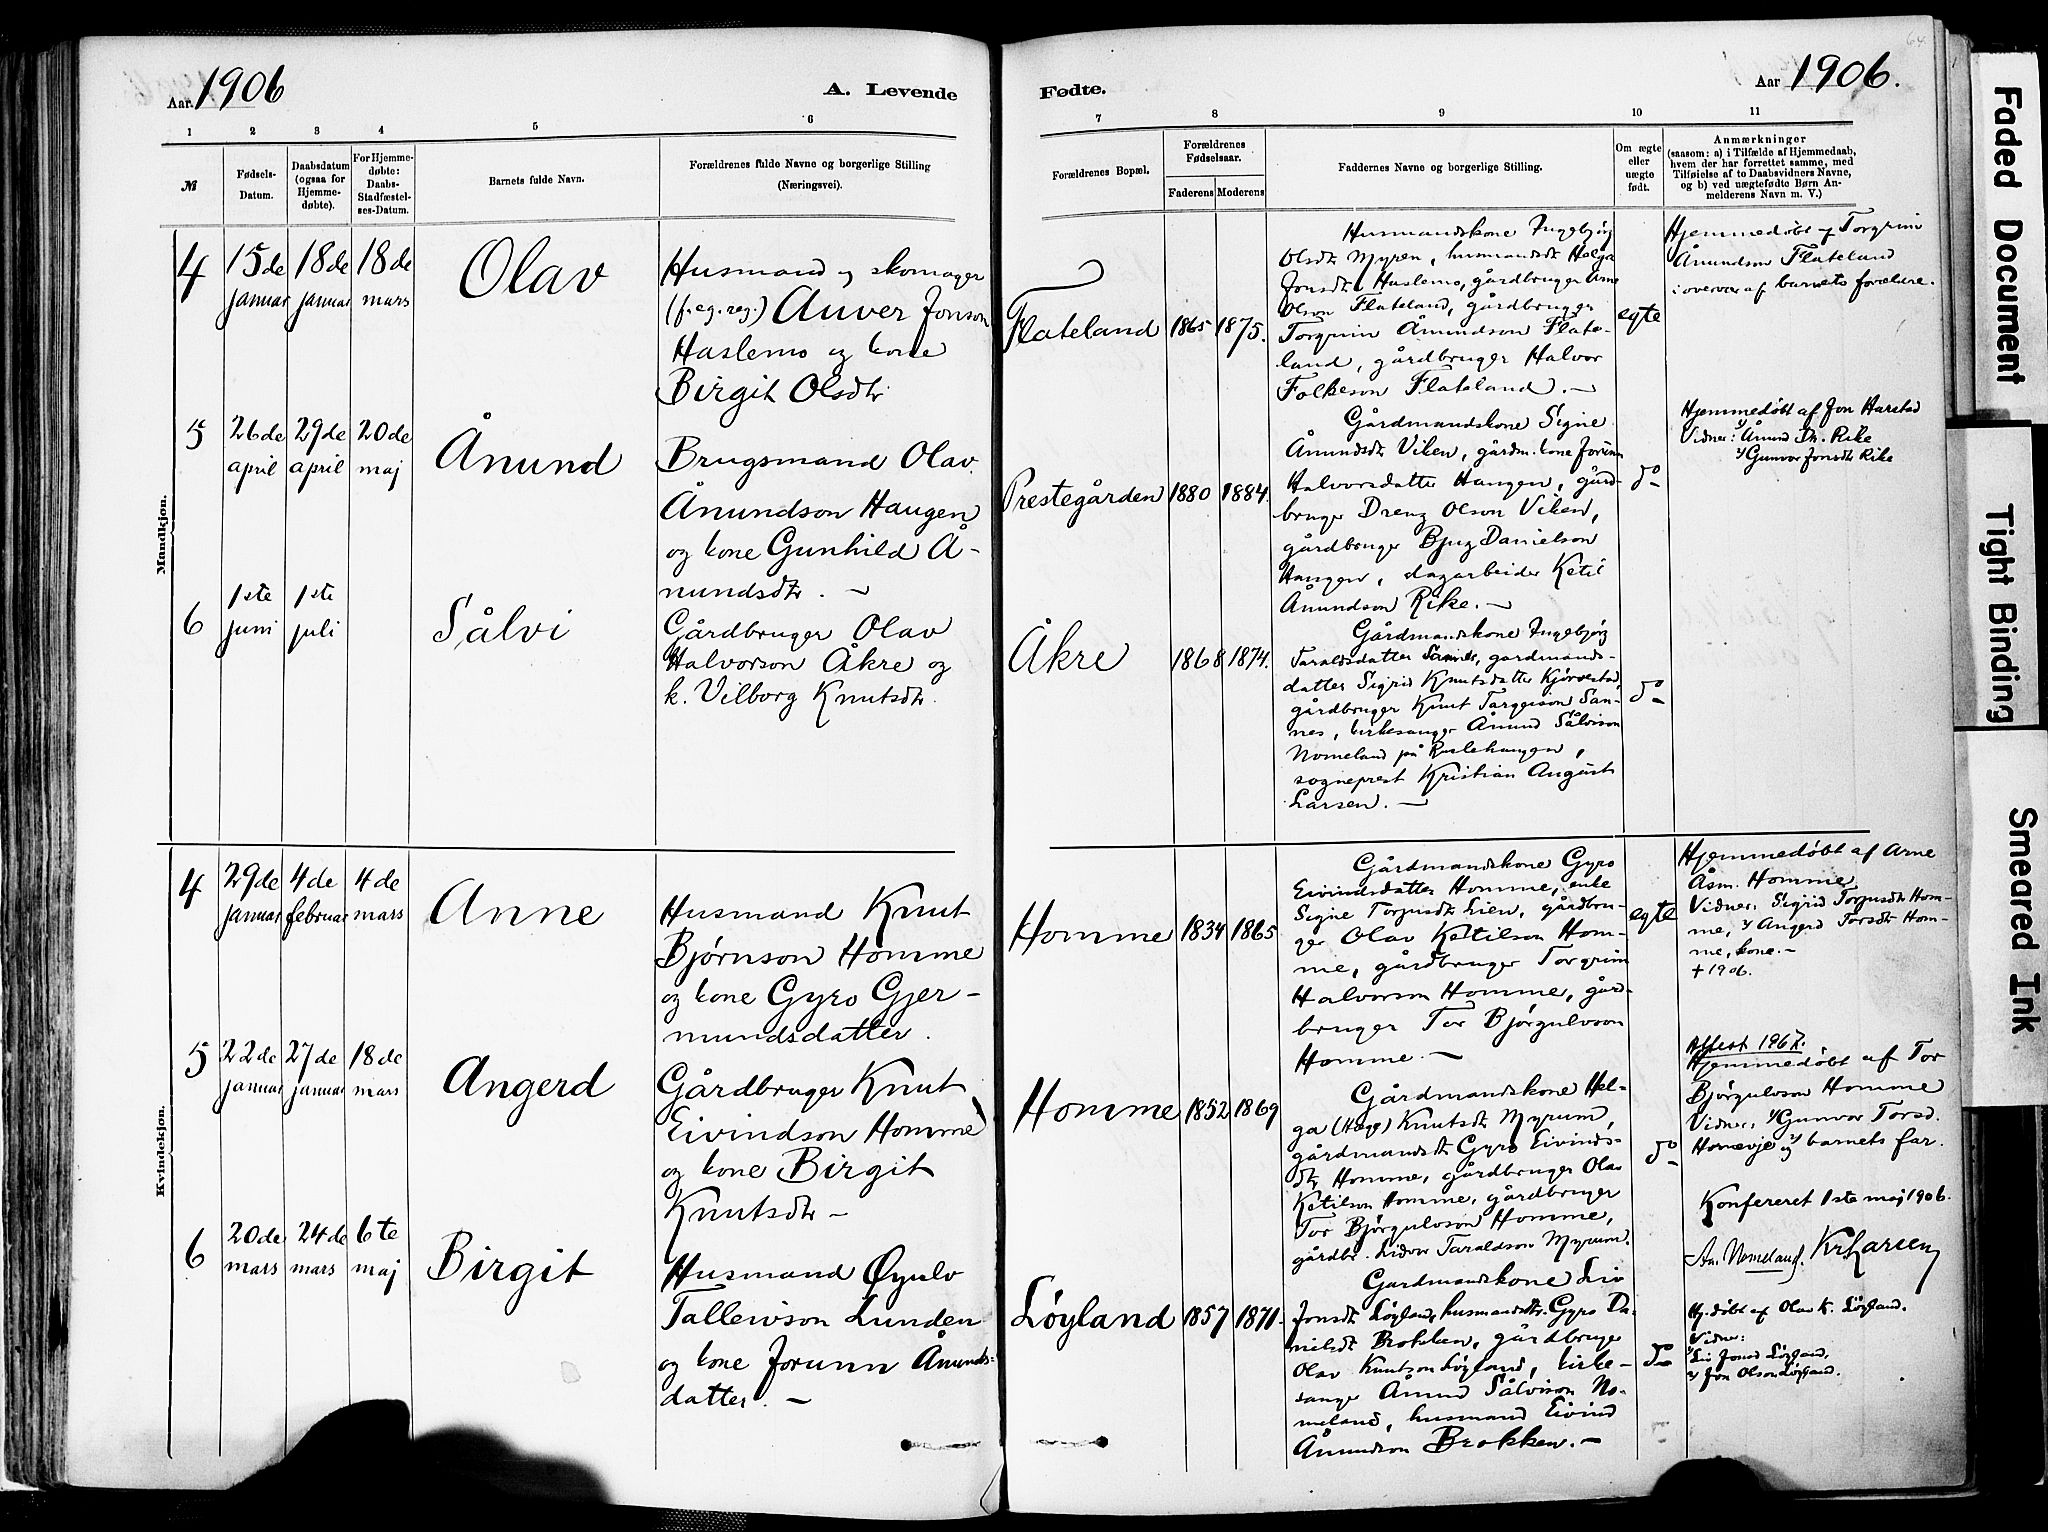 Aar 1906
A. Levende
1 2 3 4 5 6
№
Fødsels-
Datum.
Daabsdatum
(ogsaa for
Hjemme-
døbte).
For Hjemme-
døbte:
Daabs-
Stadfæstel-
ses-Datum.
Barnets fulde Navn.
Forældrenes fulde Navne og borgerlige Stilling
(Næringsvei).
Mandkjøn.
4
15de
januar
18de
januar
18de
mars
Olav
Husmand og skomager
(f.eg.reg.) Auver Jonson
Haslemo og kone
Birgit Olsdtr
5
26de
april
29de
april
20de
maj
Ånund
Brugsmand Olav
Ånundson Haugen
og kone Gunhild Å-
nundsdtr. —
6
1ste
juni
1ste
juli
Sålvi
Gårdbruger Olav
Halvorson Åkre og
k. Vilborg Knutsdtr.
Kvindekjøn.
4
29de
januar
4de
februar
4de
mars
Anne
Husmand Knut
Bjørnson Homme
og kone Gyro Gjer-
mundsdatter.
5
22de
januar
27de
januar
18de
mars
Angerd
Gårdbruger Knut
Eivindson Homme
og kone Birgit
Knutsdtr —
6
20de
mars
24de
mars
6te
maj
Birgit
Husmand Øyulv
Tallevson Lunden
og kone Jorunn Ånunds-
datter. —
64
Fødte.
Aar 1906.
7 8 9 10 11
Forældrenes Bopæl.
Forældrenes
Fødselsaar.
Faderens Moderens
Faddernes Navne og borgerlige Stilling.
Om ægte
eller
uægte
født.
Anmærkninger
(saasom: a) i Tilfælde af Hjemmedaab,
hvem der har forrettet samme, med
Tilføielse af to Daabsvidners Navne,
og b) ved uægtefødte Børn An-
melderens Navn m. V.)
Flateland
1865 1875.
Husmandskone Ingebjørg
Olsdtr Myren, husmandsdtr Helga
Jonsdtr Haslemo, gårdbruger Arne
Olson Flateland, gårdbruger
Torgrim Åmundson Flate-
land, gårdbruger Halvor
Folkeson Flateland. —
egte
Hjemmedøbt af Torgrim
Åmundson Flateland
i overvær af barnets forældre.
Prestegården
1880 1884.
Gårdmandskone Signe
Åmundsdtr Viken, gårdm. kone Jorunn
Halvorsdatter Haugen, gård-
bruger Dreng Olson Viken,
gårdbruger Bjug Danielson
Haugen, dagarbeider Ketil
Ånundson Rike. —
do
Hjemmedøbt af Jon Harstad
Vidner: 1/ Ånund Dr. Rike
2/ Gunvor Jonsdtr Rike
Åkre
1868 1874.
Gårdmandskone Ingebjørg
Taraldsdatter Sannes, gardmands-
datter Sigrid Knutsdatter Kjørvestad,
gårdbruger Knut Targeison San-
nes, kirkesanger Ånund Sålvison
Nomeland på Ruslehaugen,
sogneprest Kristian August
Larsen. —
do
Homme
1834 1865
Gårdmandskone Gyro
Eivindsdatter Homme, enke
Signe Torjusdtr Lien, gårdbru-
ger Olav Ketilson Hom-
me, gårdbruger Torgrim
Halvorson Homme, gård-
bruger Tor Bjørgulvson
Homme. —
egte
Hjemmedøbt af Arne
Åsm. Homme
Vidner: Sigrid Torjusdtr Hom-
me, 2/ Angerd Torsdtr Hom-
me, kone. —
+ 1906.
Homme
1852 1869
Gårdmandskone Hel-
ga (Hæge) Knutsdtr Myrum,
gårdmandsdtr Gyro Eivinds-
dtr Homme, gårdbruger Olav
Ketilson Homme, gårdbruger
Tor Bjørgulvson Homme,
gårdbr. Lidvor Taraldson Myrum.
do
Attest 1967.
Hjemmedøbt af Tor
Bjørgulvson Homme
Vidner: 1/ Gunvor Torsd.
Hornevje og 2/ barnets far.
Konfereret 1ste maj 1906.
An. Nomeland. Kr Larsen
Løyland
1857 1871.
Gardmandskone Liv
Jonsdtr Løyland, husmandsdtr. Gyro Da-
nielsdtr Brokken, gårdbruger
Olav Knutson Løyland, kirke-
sanger Ånund Sålvison No-
meland, husmand Eivind
Ånundson Brokken. —
do
Hj.døbt af Olav K. Løyland.
Vidner:
1/ Liv Jonsd Løyland,
2/ Jon Olson Løyland.
Faded Document
Tight Binding
Smeared Ink